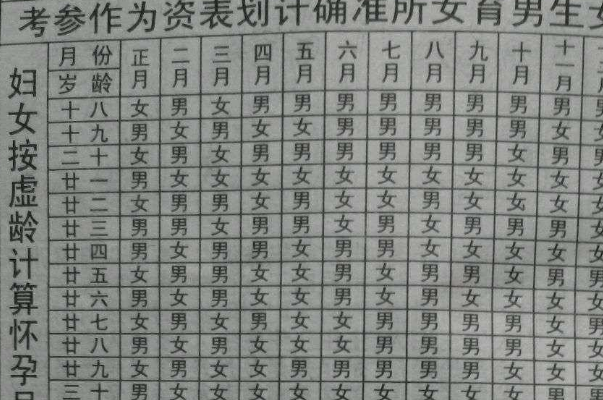 考参作为资表划计确准所女育男生
妇女按虚龄计算怀孕
月份 正月 二月 三月 四月 五月 六月 七月 八月 九月 十月 十一月
岁龄
十八 女 男 女 男 男 男 男 男 男 男 男 男
十九 男 女 男 女 女 男 男 男 男 男 女 女
二十 女 男 女 男 男 男 男 男 男 女 男 男
廿一 男 女 女 女 女 女 女 女 女 女 女 女
廿二 女 男 男 女 男 女 女 男 女 女 女 女
廿三 男 男 女 男 男 女 男 女 男 男 男 女
廿四 男 女 男 男 女 男 男 女 女 女 女 女
廿五 女 男 男 女 女 男 女 男 男 女 男 男
廿六 男 女 男 女 女 男 女 男 女 女 女 女
廿七 女 男 女 男 女 女 男 男 男 男 女 男
廿八 男 女 男 女 女 女 男 男 男 男 女 女
廿九 女 男 女 女 男 男 男 男 男 女 女 女
三十 男 女 女 女 女 女 女 女 女 女 男 男